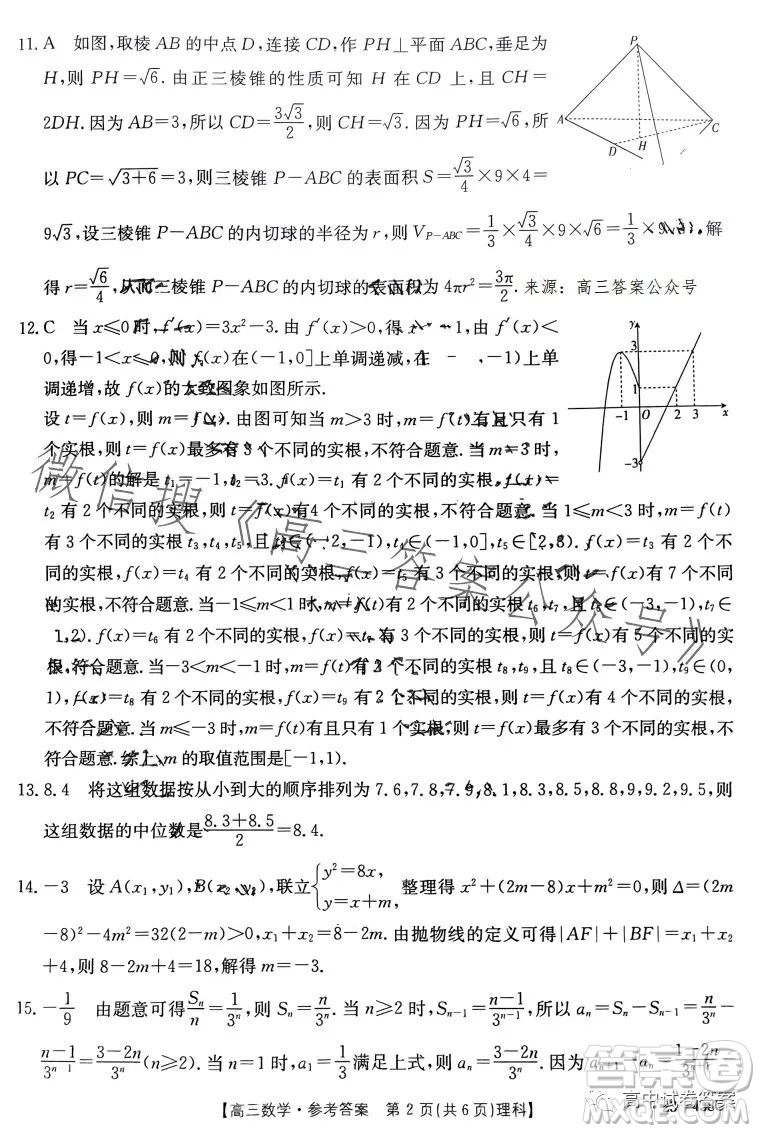 11. A 如图,取棱AB的中点D,连接CD,作PH⊥平面ABC,垂足为
H,则PH=√6. 由正三棱锥的性质可知H在CD上,且CH=
2DH. 因为AB=3,所以CD=3√3/2,则CH=√3. 因为PH=√6,所
以PC=√(3+6)=3,则三棱锥P-ABC的表面积S=√3/4×9×4=
9√3,设三棱锥P-ABC的内切球的半径为r,则V_{P-ABC}=1/3×√3/4×9×√6=1/3×9 解
得r=√6/4,从而三棱锥P-ABC的内切球的表面积为4πr²=3π/2. 来源:高三答案公众号
P
A
C
D
H
12. C 当x≤0时,f′(x)=3x²-3. 由f′(x)>0,得 由f′(x)<
0,得-1<x≤0,则f(x)在(-1,0]上单调递减,在 上单
调递增,故f(x)的大致图象如图所示.
设t=f(x),则m=f(t). 由图可知当m>3时,m=f(t)有且只有1
个实根,则t=f(x)最多有3个不同的实根,不符合题意. 当m=3时,
m=f(t)的解是t₁=-1,t₂=3. f(x)=t₁有2个不同的实根,f(x)=
t₂有2个不同的实根,则t=f(x)有4个不同的实根,不符合题意. 当1≤m<3时,m=f(t)
有3个不同的实根t₃,t₄,t₅,且t₃∈(-2,-1),t₄∈(-1,0],t₅∈[2,3). f(x)=t₃有2个不同
的实根,f(x)=t₄有2个不同的实根,f(x)=t₅有2个不同的实根,则t=f(x)有7个不同的实
不符合题意. 当-1≤m<1时,m=f(t)有2个不同的实根t₆,t₇,且t₆∈ t₇∈
1,2). f(x)=t₆有2个不同的实根,f(x)=t₇有3个不同的实根,则t=f(x)有5个不同的实
根,符合题意. 当-3<m<-1时,m=f(t)有2个不同的实根t₈,t₉,且 t₉∈(0,
1),f(x)=t₈有2个不同的实根,f(x)=t₉有 个不同的实根,则t=f(x)有 个不同的实根,
不符合题意. 当m≤-3时,m=f(t)有且只有1个实根,则t=f(x)最多有3个不同的实根,
不符合题意. 综上,m的取值范围是[-1,1).
y
3
1
-1
O
2
3
x
-3
13. 8.4 将这组数据按从小到大的顺序排列为7.6,7.8,7.9,8.1,8.3,8.5,8.8,9.5,9.2,9.5,则
这组数据的中位数是(8.3+8.5)/2=8.4.
14. -3 设A(x₁,y₁),B(x₂,y₂),联立{y²=8x, y=x+m, 整理得x²+(2m-8)x+m²=0,则Δ=(2m
-8)²-4m²=32(2-m)>0,x₁+x₂=8-2m. 由抛物线的定义可得|AF|+|BF|=x₁+x₂
+4,则8-2m+4=18,解得m=-3.
15. -1/9 由题意可得Sₙ/n=1/3ⁿ,则Sₙ=n/3ⁿ. 当n≥2时,Sₙ₋₁=(n-1)/3ⁿ⁻¹,所以aₙ=Sₙ-Sₙ₋₁=n/3ⁿ-
(n-1)/3ⁿ⁻¹=(3-2n)/3ⁿ(n≥2). 当n=1时,a₁=1/3满足上式,则aₙ=(3-2n)/3ⁿ. 因为aₙ₊₁-aₙ=(1-2n)/3ⁿ⁺¹-
【高三数学·参考答案 第2页(共6页)理科】
微信搜《高三答案公众号》
答案圈
高中试卷答案